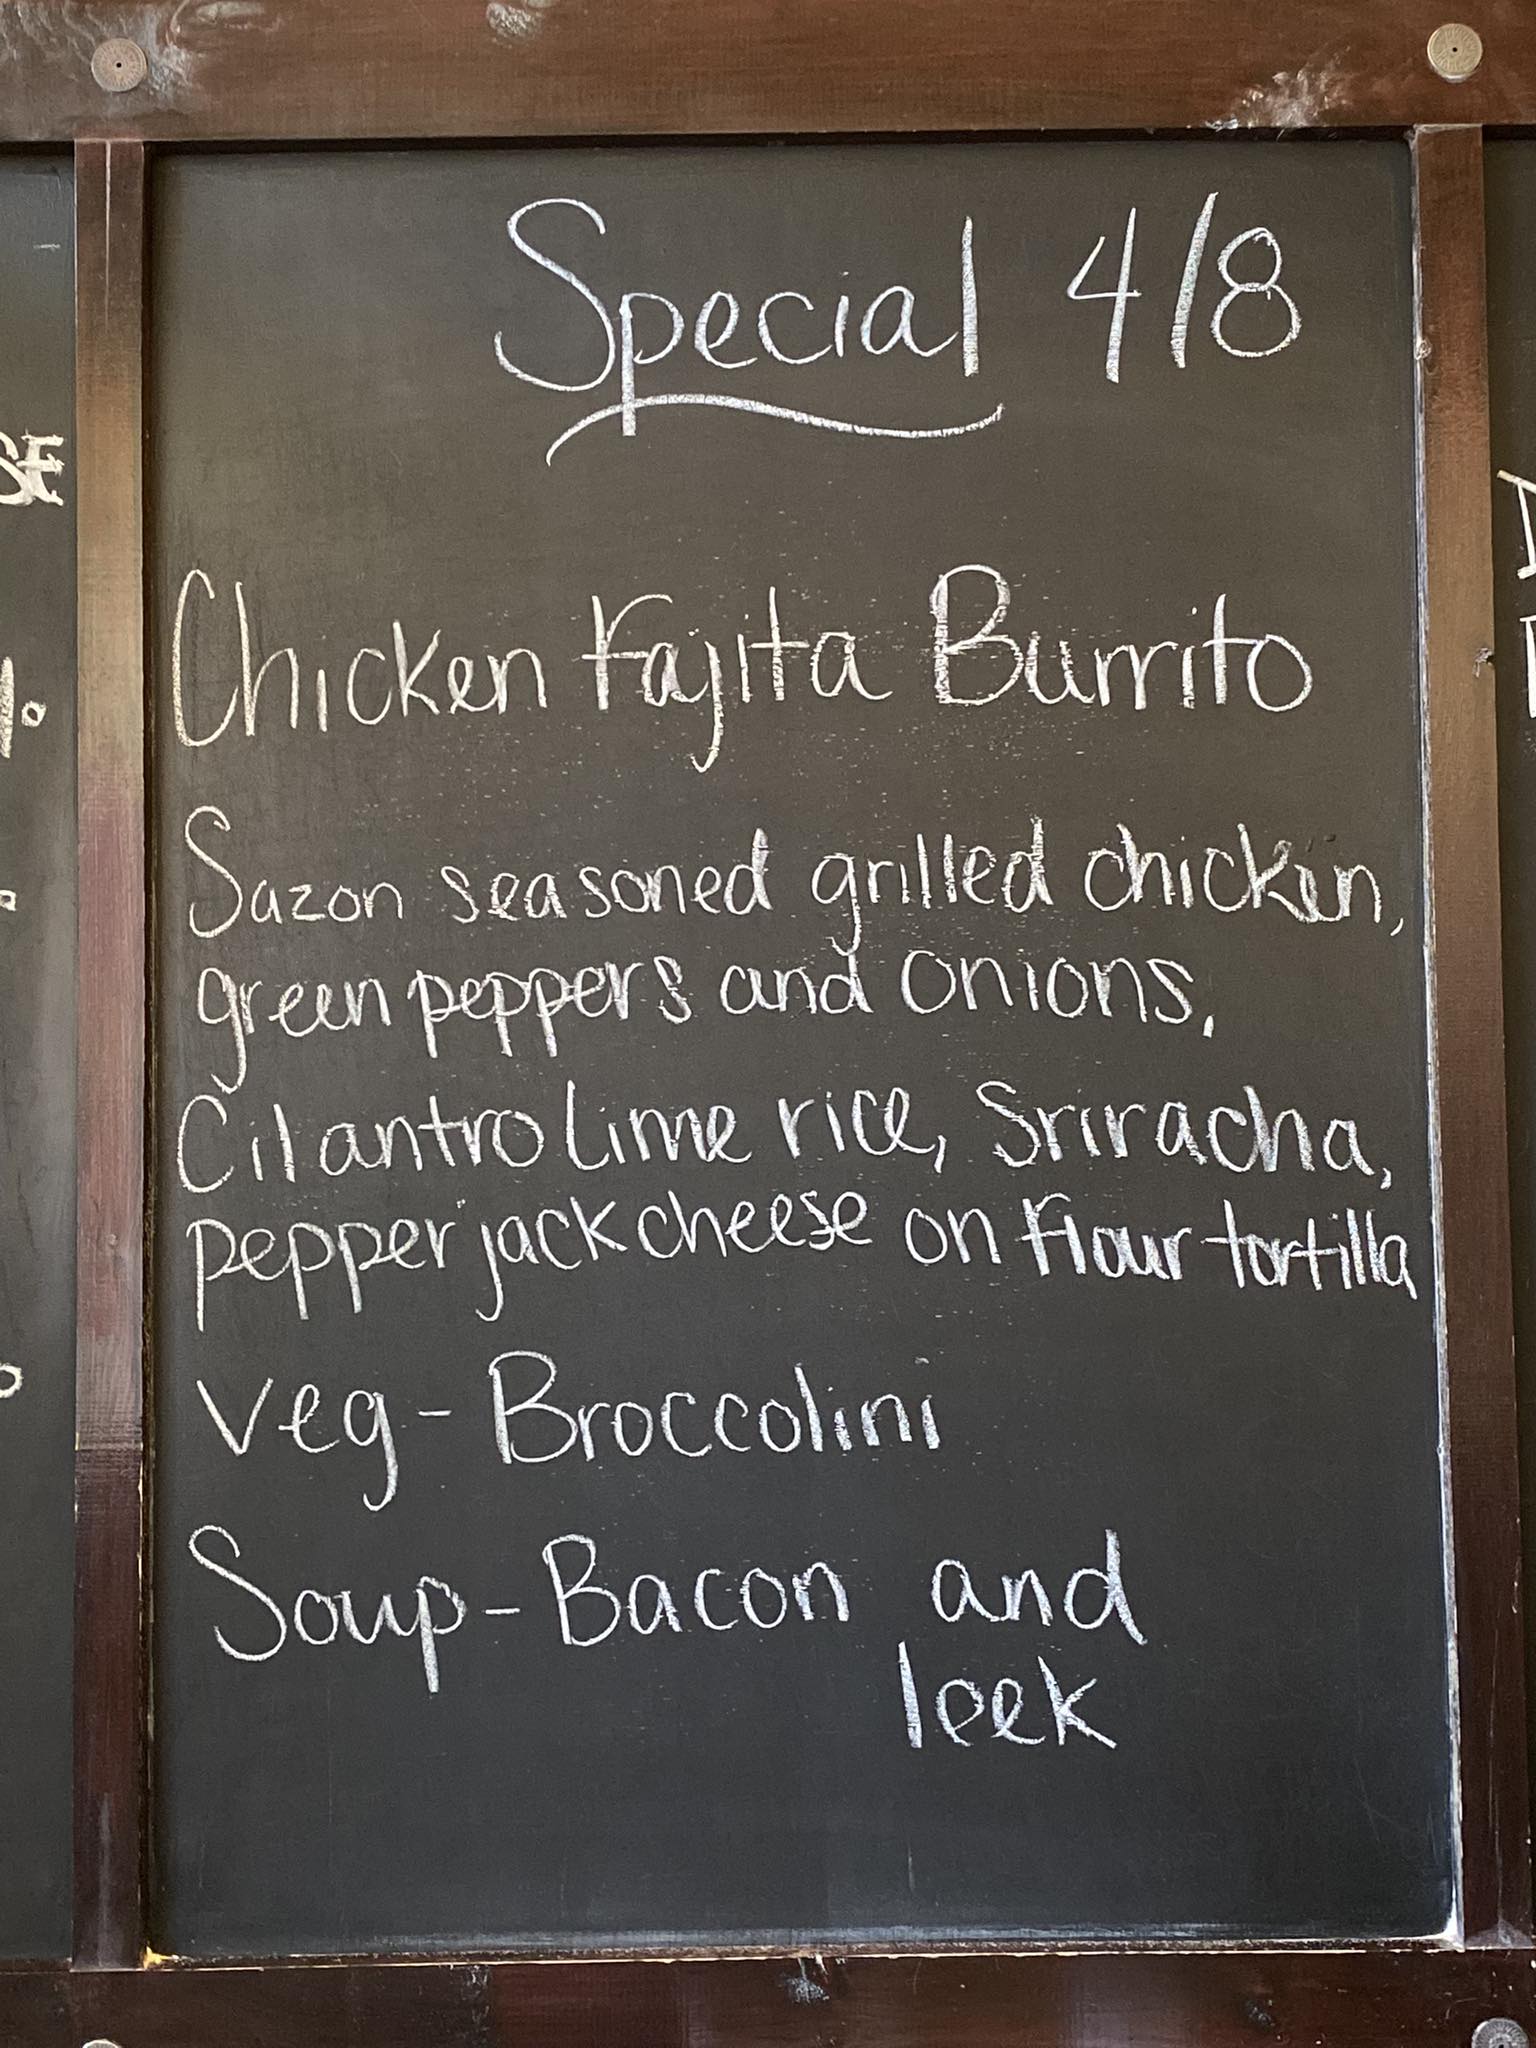 Special 4/8
Chicken Fajita Burrito
Sazon seasoned grilled chicken,
green peppers and onions,
Cilantro lime rice, Sriracha,
pepper jack cheese on Flour tortilla
Veg - Broccolini
Soup - Bacon and
leek